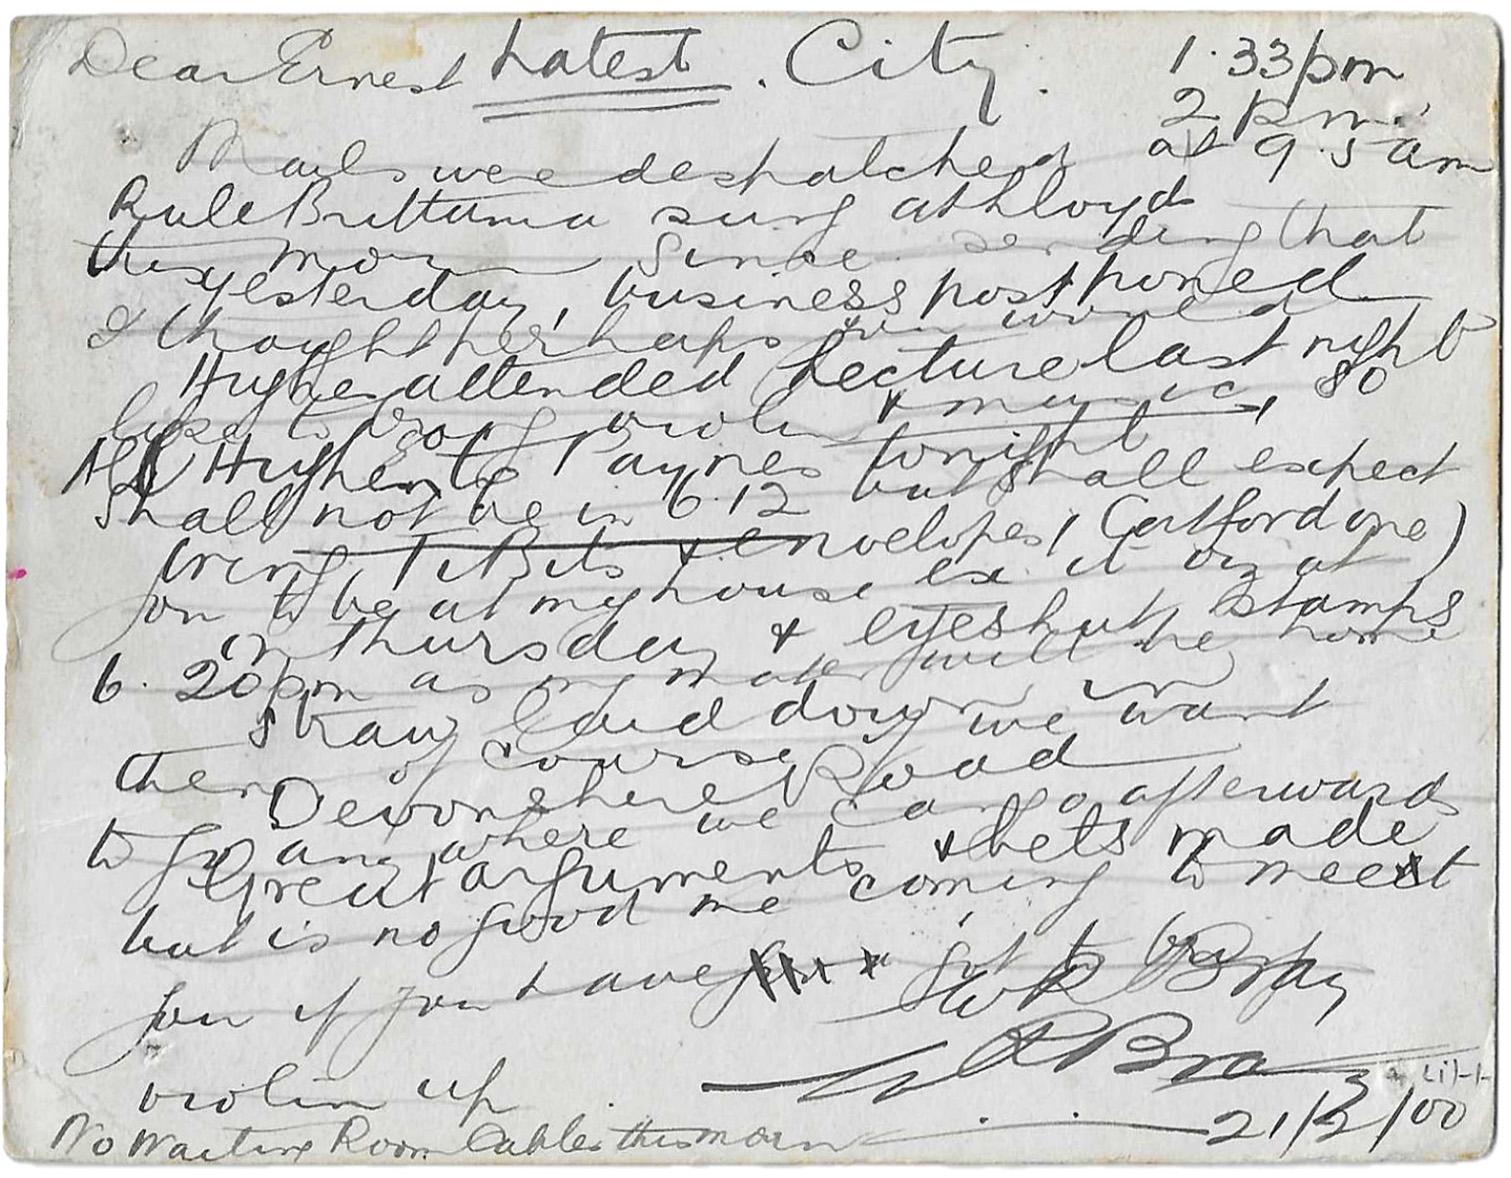 Dear Ernest Latest. City. 1.33 pm
2 pm.
Mails were despatched at 9.5 am
Rule Brittania sung at Lloyds
this morn Since sending that
yesterday, business postponed
I thought perhaps you would
Hughes attended Lecture last night
like to bring violin & music, so
Hughes to Paynes tonight
shall not be in 6.12 but shall expect
bring TitBits & envelopes (Catford one)
you to be at my house ex it or at
on Thursday & eyeshut stamps
6.20 pm as my mater will be home
Straw laid down in
then of course we want
Devonshire Road
to go anywhere we can go afterwards
Great arguments & bets made
but is no good me coming to meet
you if you have got to bring
W R Bray
violin up
W R Bra
21/2/00
No Waiting Room Cables this morn